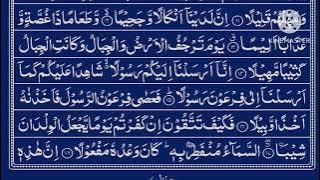 وَمَهِّلْهُمْ قَلِيْلًا ۝ اِنَّ لَدَيْنَاۤ اَنْكَالًا وَّجَحِيْمًا ۝ وَّطَعَامًا ذَا غُصَّةٍ وَّ
عَذَابًا اَلِيْمًا ۝ يَوْمَ تَرْجُفُ الْاَرْضُ وَالْجِبَالُ وَكَانَتِ الْجِبَالُ
كَثِيْبًا مَّهِيْلًا ۝ اِنَّاۤ اَرْسَلْنَاۤ اِلَيْكُمْ رَسُوْلًا ۙ شَاهِدًا عَلَيْكُمْ كَمَاۤ
اَرْسَلْنَاۤ اِلٰى فِرْعَوْنَ رَسُوْلًا ۝ فَعَصٰى فِرْعَوْنُ الرَّسُوْلَ فَاَخَذْنٰهُ
اَخْذًا وَّبِيْلًا ۝ فَكَيْفَ تَتَّقُوْنَ اِنْ كَفَرْتُمْ يَوْمًا يَّجْعَلُ الْوِلْدَانَ
شِيْبًا ۝ السَّمَآءُ مُنْفَطِرٌۢ بِهٖ ؕ كَانَ وَعْدُهٗ مَفْعُوْلًا ۝ اِنَّ هٰذِهٖ
KINEMASTER